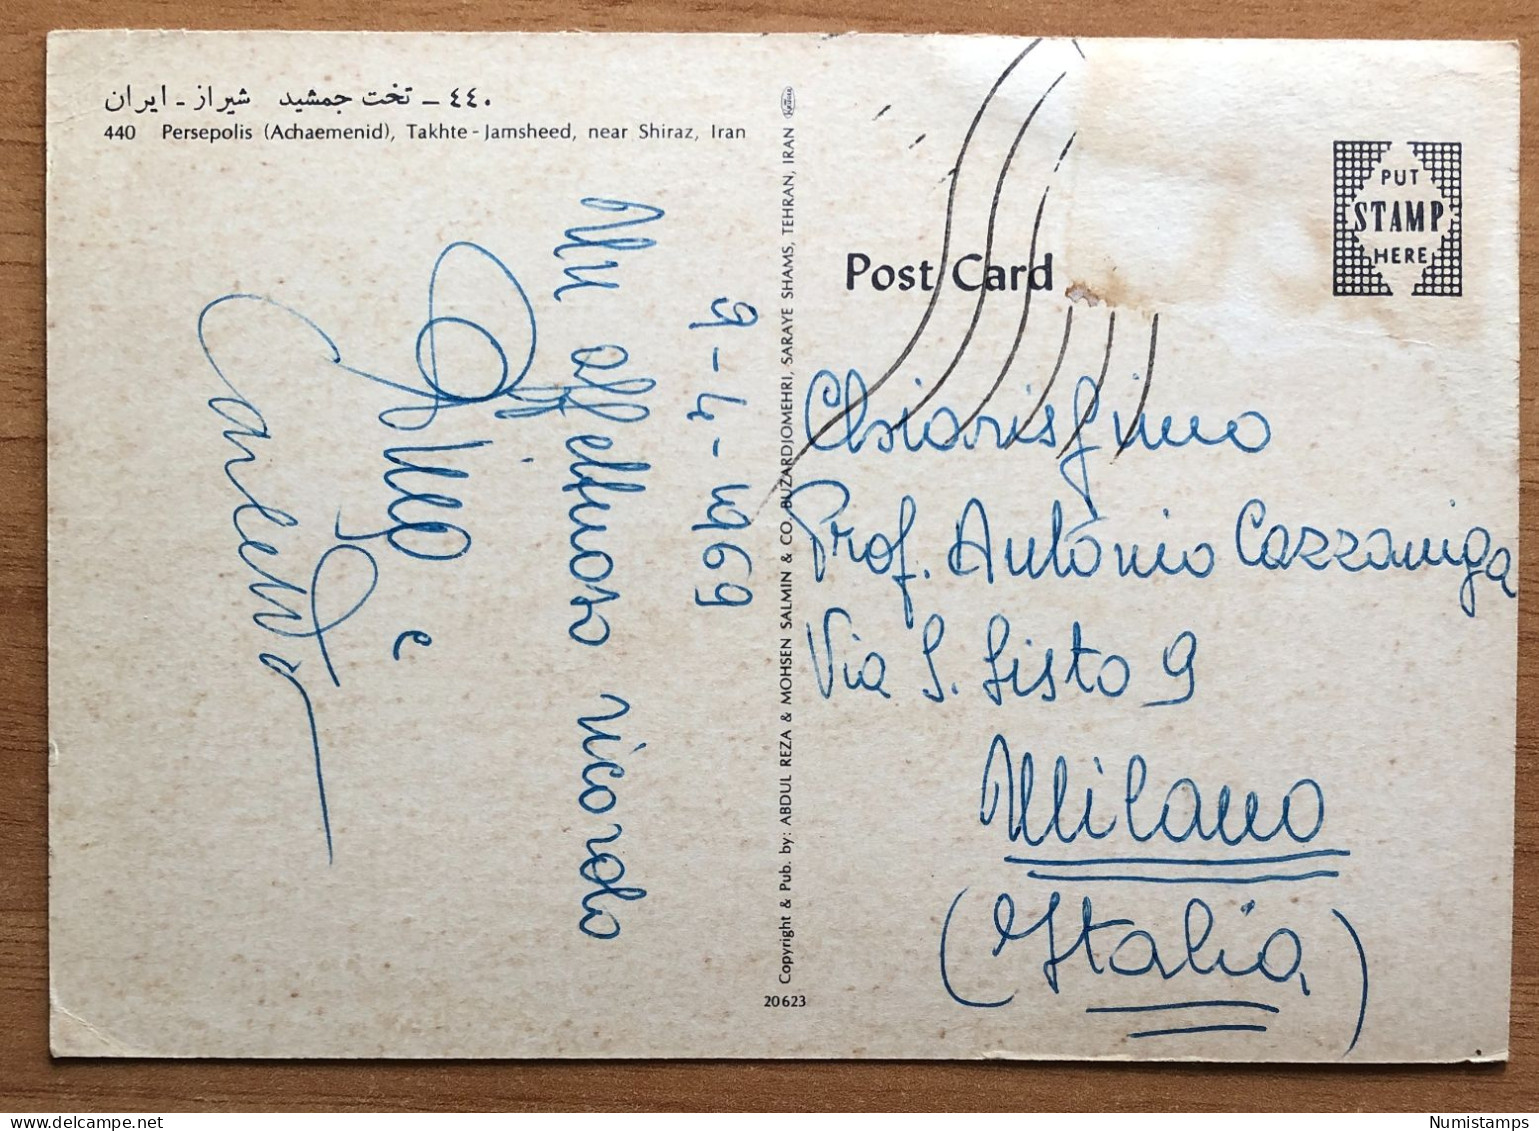 ۴۴۰ - تخت جمشید شیراز - ایران
440 Persepolis (Achaemenid), Takhte-Jamsheed, near Shiraz, Iran
9-4-1969
Un affettuoso ricordo
e
Copyright & Pub. by: ABDUL REZA & MOHSEN SALMIN & CO. BUZARDJOMEHRI, SARAYE SHAMS, TEHRAN, IRAN
20623
PUT
STAMP
HERE
Post Card
Chiarissimo
Prof. Antonio Cazzaniga
Via S. Sisto 9
Milano
(Italia)
Numistamps